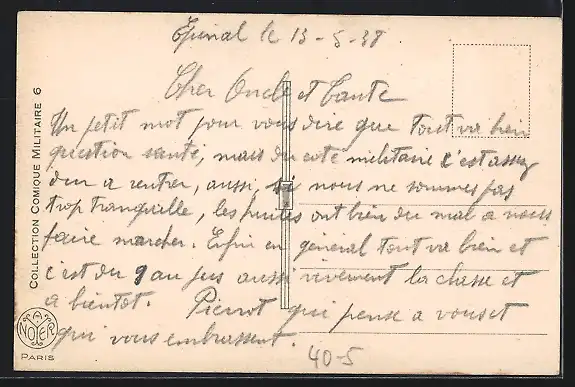 Epinal le 13-5-38
Cher Oncle et Tante
Un petit mot pour vous dire que tout va bien
question santé, mais du coté militaire c'est assez
dur a rentrer, aussi si nous ne sommes pas
trop tranquille, les ont bien du mal a nous
faire marcher. Enfin en général tout va bien et
c'est du 9 au jus aussi vivement la classe et
a bientot. Pierrot qui pense a vous et
qui vous embrassent.
40-5
COLLECTION COMIQUE MILITAIRE 6
A. NOYER
PARIS